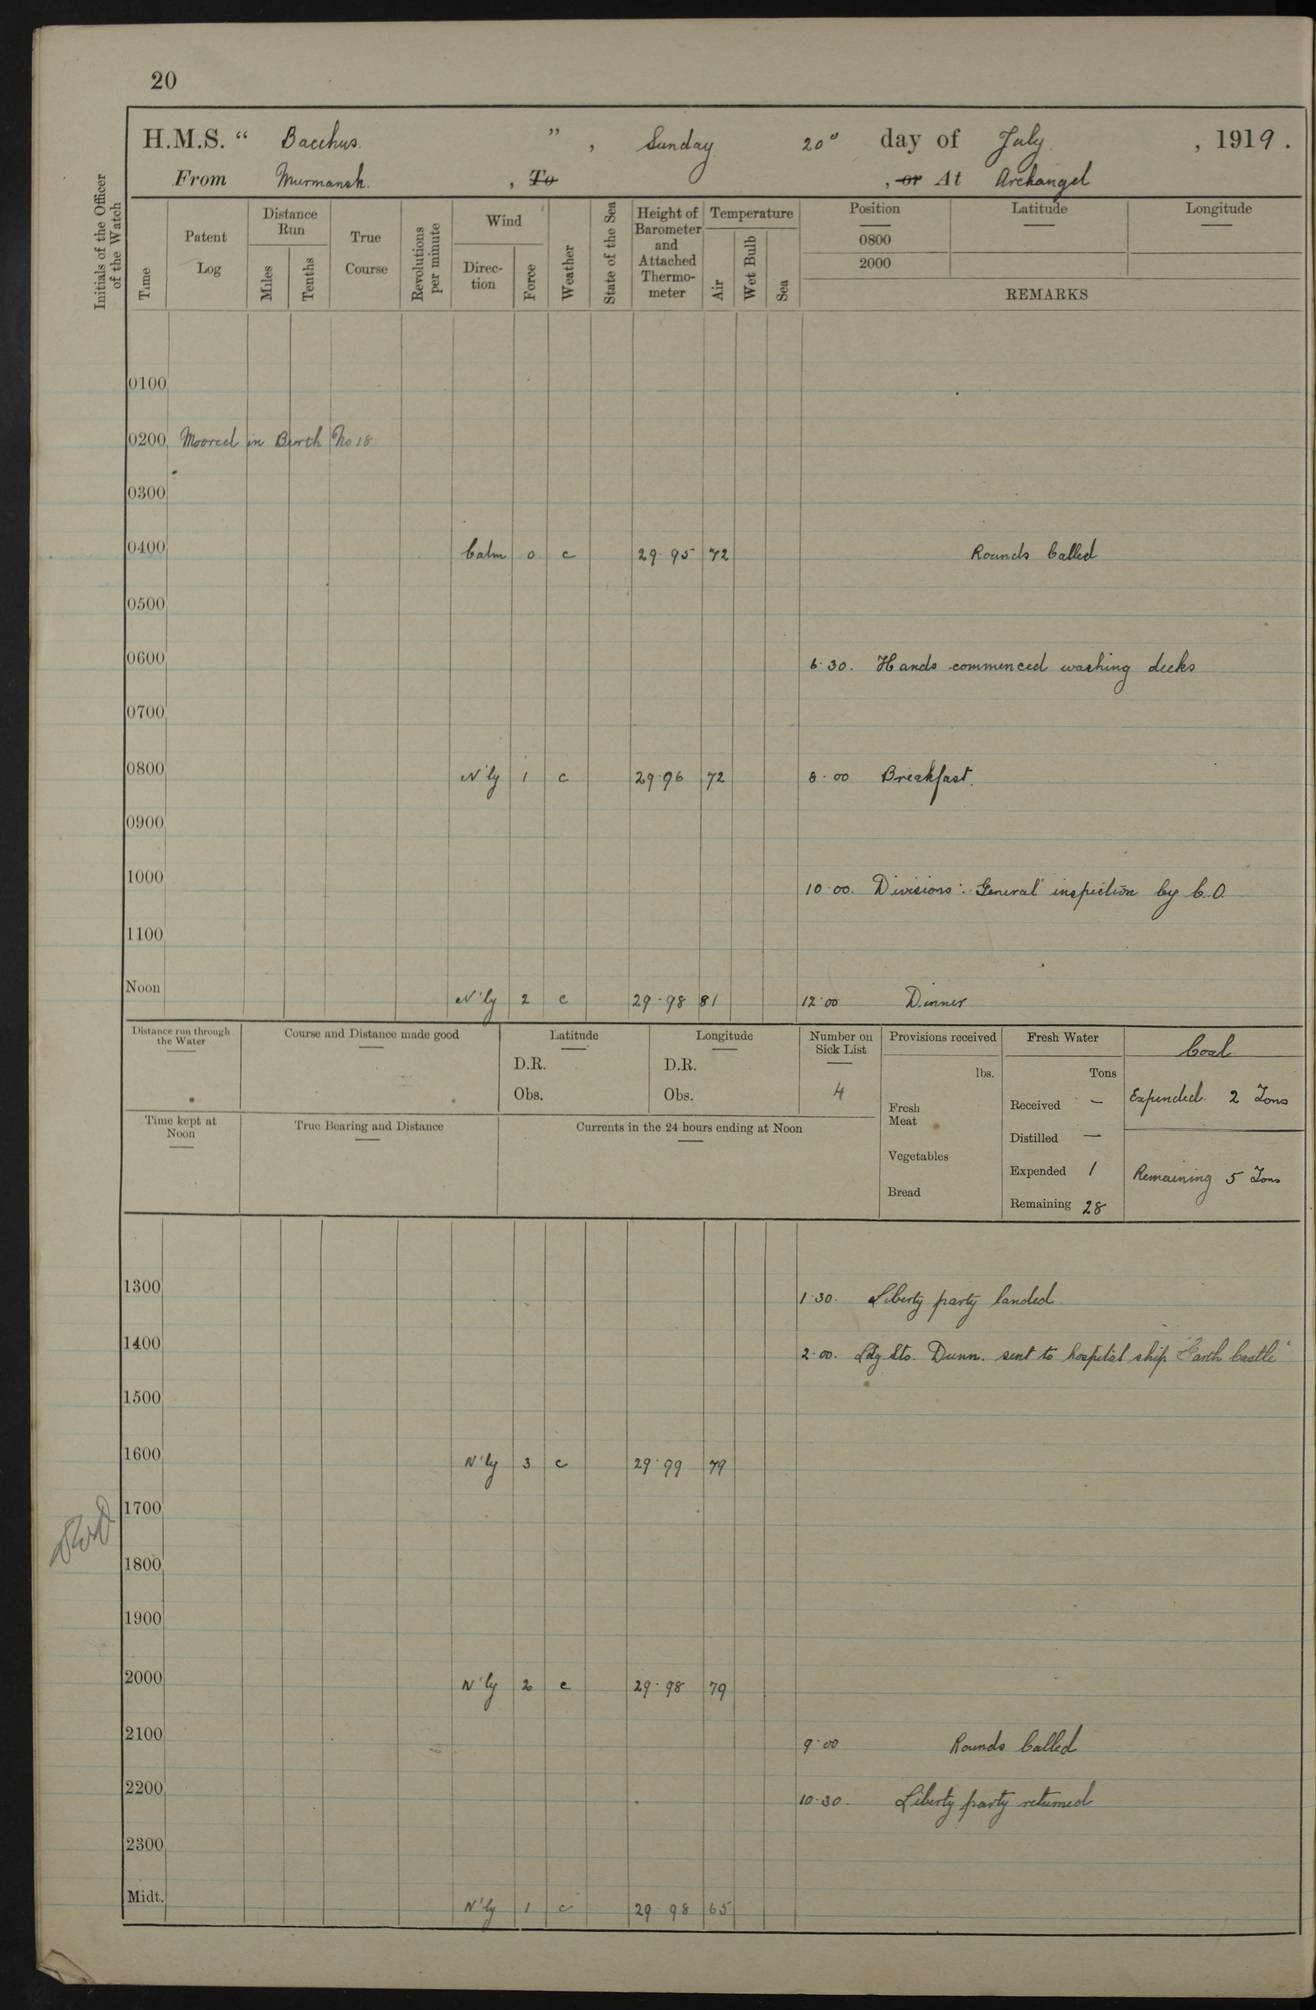 20
H.M.S. " Bacchus " , Sunday 20th day of July , 1919 .
From Murmansk , To , or At Archangel
Initials of the Officer of the Watch
Time
Patent Log
Distance Run
Miles
Tenths
True Course
Revolutions per minute
Wind
Direc-tion
Force
Weather
State of the Sea
Height of Barometer and Attached Thermo-meter
Temperature
Air
Wet Bulb
Sea
Position
0800
2000
Latitude
Longitude
REMARKS
0100
0200 Moored in Berth No 18
0300
0400 Calm 0 c 29.95 72 Rounds Called
0500
0600 6.30. Hands commenced washing decks
0700
0800 N'ly 1 c 29.96 72 8.00 Breakfast.
0900
1000 10.00. Divisions: General inspection by C.O.
1100
Noon N'ly 2 c 29.98 81 12.00 Dinner
Distance run through the Water
Course and Distance made good
Latitude
D.R.
Obs.
Longitude
D.R.
Obs.
Number on Sick List
4
Provisions received
lbs.
Fresh Meat
Vegetables
Bread
Fresh Water
Tons
Received —
Distilled —
Expended 1
Remaining 28
Coal
Expended. 2 Tons
Remaining 5 Tons
Time kept at Noon
True Bearing and Distance
Currents in the 24 hours ending at Noon
1300 1.30. Liberty party landed
1400 2.00. Ldg Sto. Dunn. sent to hospital ship "Garth Castle"
1500
1600 N'ly 3 c 29.99 79
1700
1800
1900
2000 N'ly 2 c 29.98 79
2100 9.00 Rounds Called
2200 10.30. Liberty party returned
2300
Midt. N'ly 1 c 29 98 65